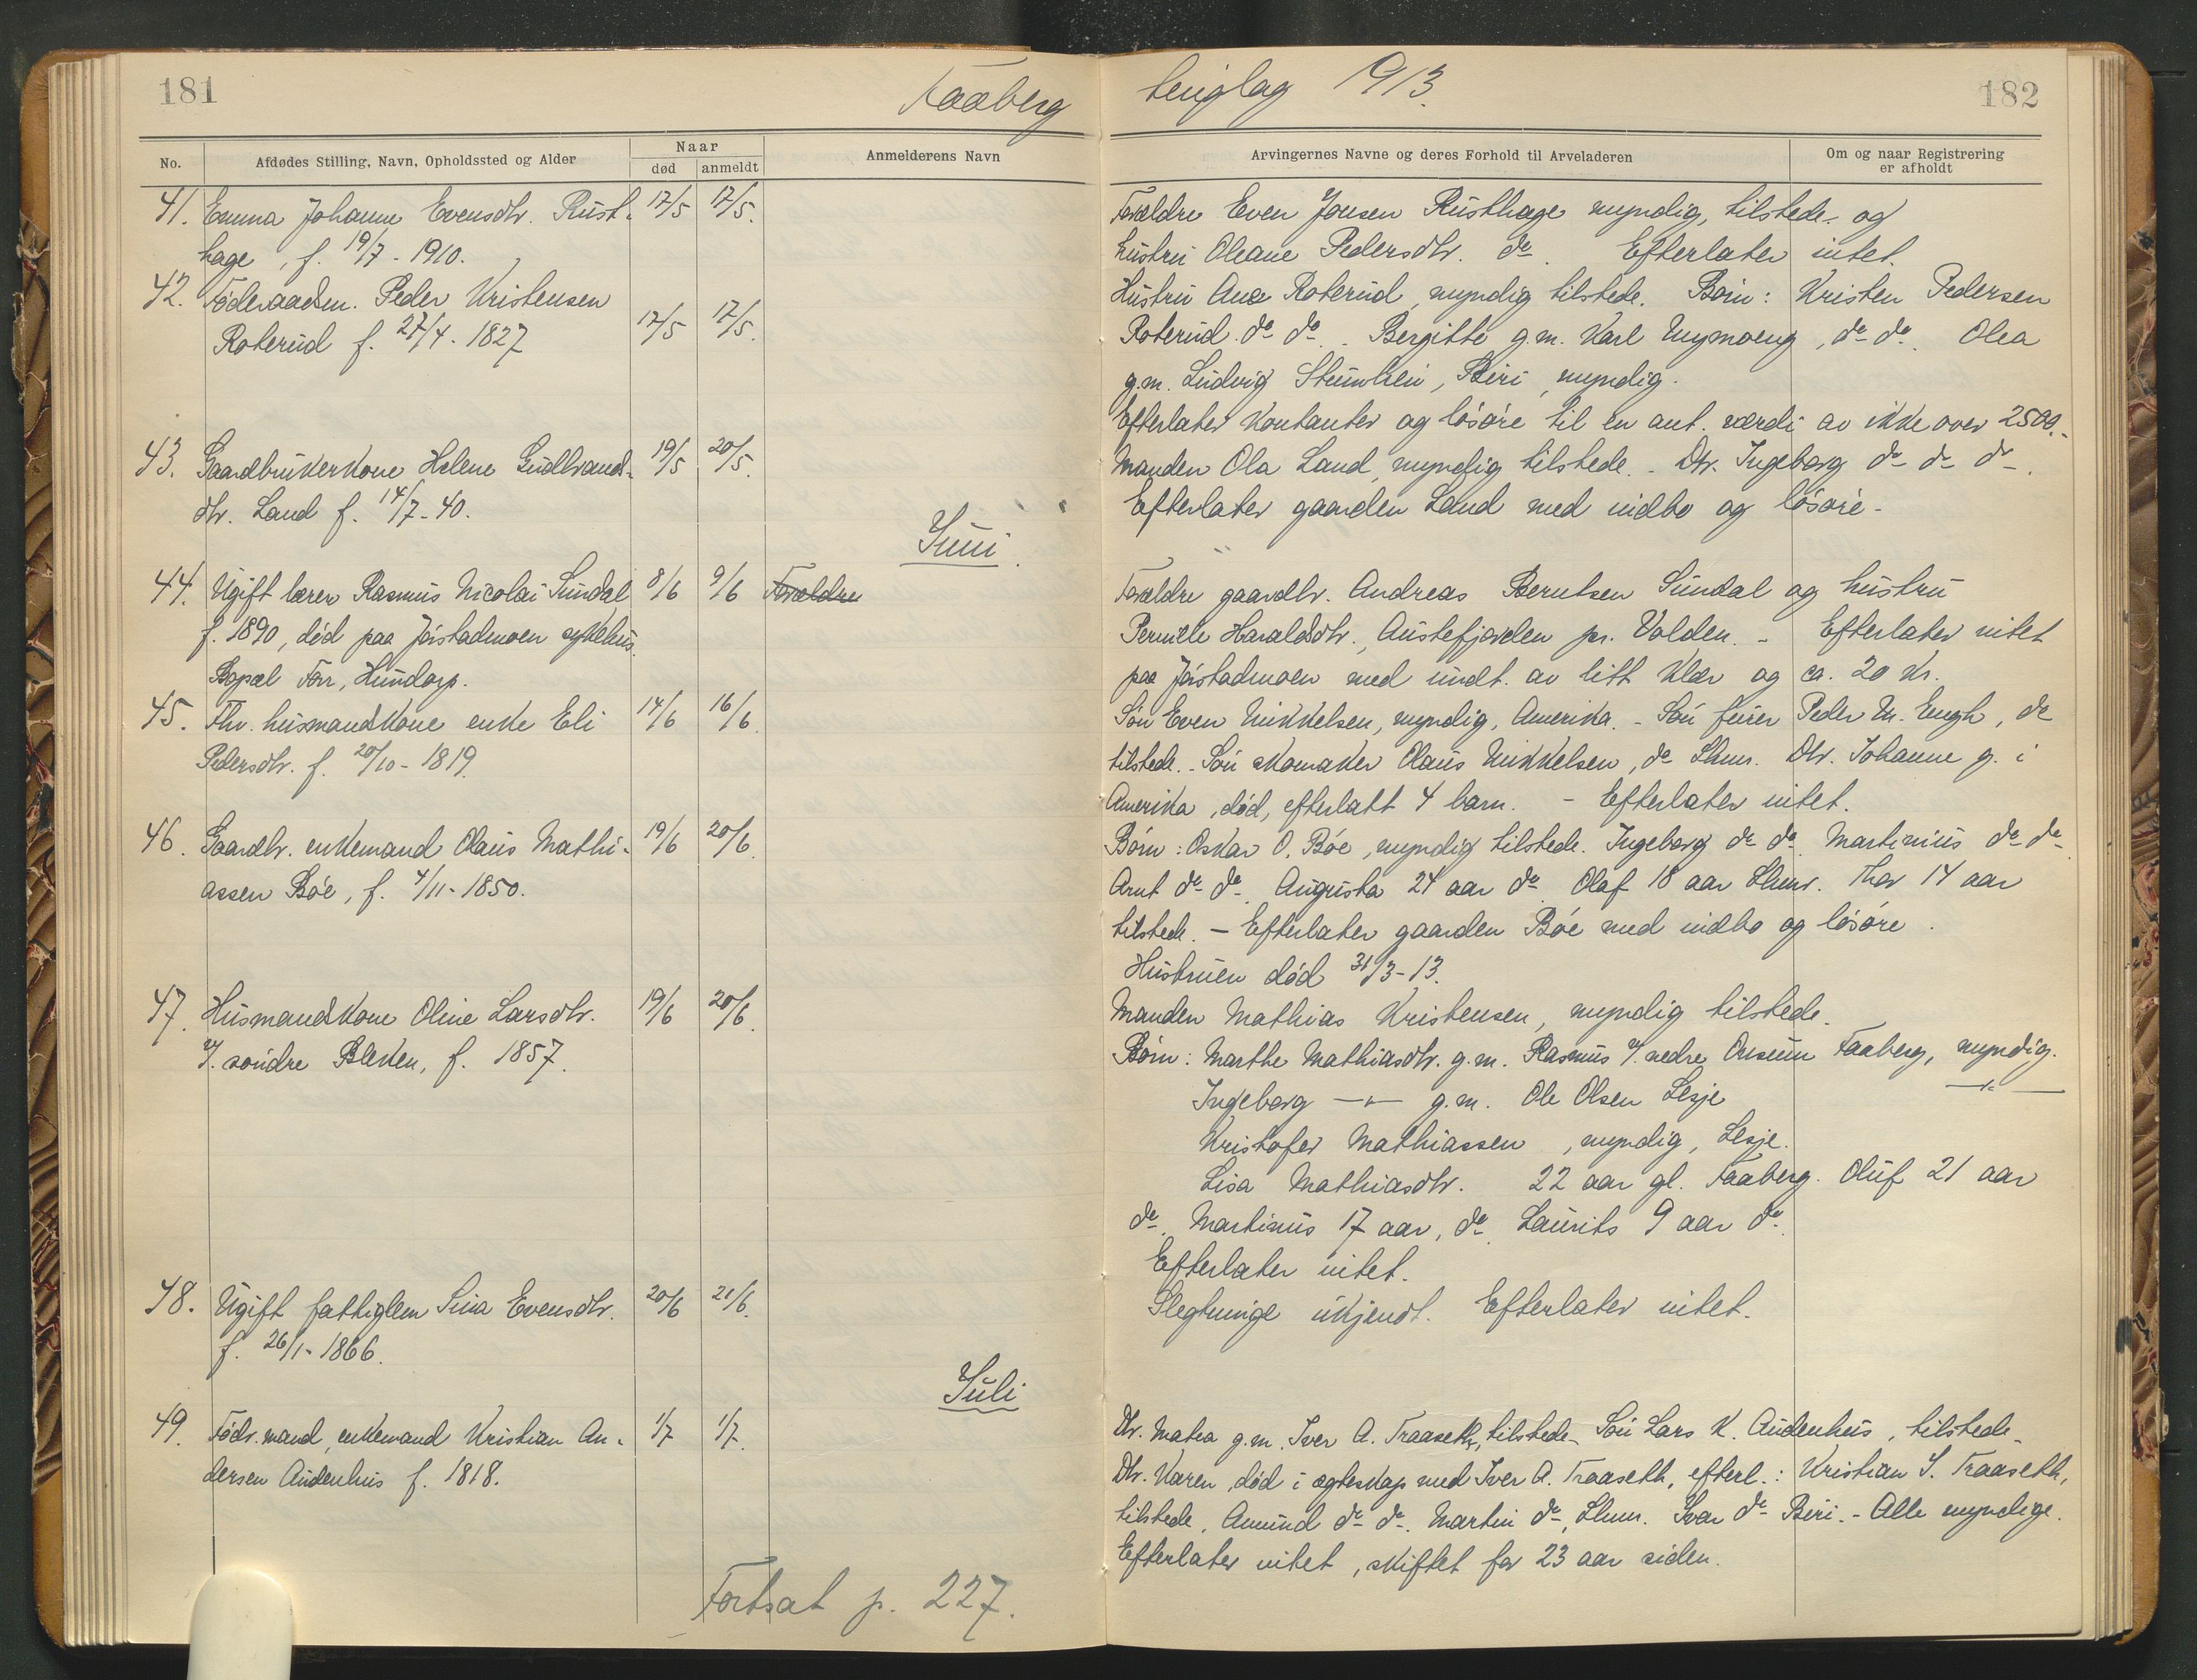 181
Faaberg
No.
Afdødes Stilling, Navn, Opholdssted og Alder
Naar
død
anmeldt
Anmelderens Navn
41. Emma Johanne Evensdtr. Rust- 17/5 17/5.
hage, f. 19/7 - 1910.
42. Føderaadsm. Peder Kristensen
Roterud f. 27/4 - 1827 17/5 17/5.
43. Gaardbrukerkone Helene Gudbrands- 19/5 20/5.
dtr. Land f. 14/7 - 40.
Juni.
44. Ugift lærer Rasmus Nicolai Sundal 8/6 9/6 Forældre
f. 1890, død paa Jørstadmoen sykehus.
Bopæl Forr, Hundorp.
45. Fhv. husmandskone enke Eli 14/6 16/6.
Pedersdtr. f. 20/10 - 1819.
46. Gaardbr. enkemand Olaus Mathi- 19/6 20/6.
assen Bøe, f. 4/11 - 1850.
47. Husmandskone Oline Larsdtr. 19/6 20/6.
u/. søndre Bleken, f. 1857.
48. Ugift fattiglem Sina Evensdtr. 20/6 21/6.
f. 26/1 - 1866.
Juli
49. Fødr. mand, enkemand Kristian An- 1/7 1/7.
dersen Audenhus f. 1818.
Fortsat p. 227.
tinglag 1913.
182
Arvingernes Navne og deres Forhold til Arveladeren
Om og naar Registrering
er afholdt
Forældre Even Jonsen Rusthage myndig, tilstede og
hustru Oleane Pedersdtr. do. Efterlater intet.
Hustru Ane Roterud, myndig tilstede. Børn: Kristen Pedersen
Roterud. do do. - Bergitte g.m. Karl Nymoeng, do do. Olea
g.m. Ludvig Stumlien, Biri, myndig.
Efterlater kontanter og løsøre til en ant. værdi av ikke over 2500.-
Manden Ola Land, myndig tilstede. - Dtr. Ingeborg do do do.
Efterlater gaarden Land med indbo og løsøre -
Forældre gaardbr. Andreas Berntsen Sundal og hustru
Pernille Haraldsdtr., Austefjorden pr. Volden. - Efterlater intet
paa Jørstadmoen med undt. av litt klær og ca. 20 kr.
Søn Even Mikkelsen, myndig, Amerika. - Søn furer Peder M. Engh, do
tilstede. - Søn skomaker Olaus Mikkelsen, do Lhmr. Dtr. Johanne g. i
Amerika, død, efterlatt 4 barn. - Efterlater intet.
Børn: Oskar O. Bøe, myndig tilstede. Ingeborg do do. Martinius do do
Arnt do do. Augusta 24 aar do. Olaf 18 aar Lhmr. Thor 14 aar
tilstede. - Efterlater gaarden Bøe med indbo og løsøre.
Hustruen død 31/3 - 13.
Manden Mathias Kristensen, myndig tilstede.
Børn: Marthe Mathiasdtr. g.m. Rasmus u/. nedre Onsum Faaberg, myndig.
Ingeborg -"- g.m. Ole Olsen Lesje -"-
Kristofer Mathiassen, myndig, Lesje.
Lisa Mathiasdtr. 22 aar gl. Faaberg. Oluf 21 aar
do. Martinus 17 aar, do. Laurits 9 aar do.
Efterlater intet.
Slegtninge ukjendt. Efterlater intet.
Dtr. Matea g.m. Iver A. Traaseth, tilstede. Søn Lars K. Audenhus, tilstede.
Dtr. Karen, død i ægteskap med Iver A. Traaseth, efterl.: Kristian I. Traaseth,
tilstede, Amund do do. Martin do, Lhmr. Ivar do Biri. - Alle myndige.
Efterlater intet, skiftet for 23 aar siden.